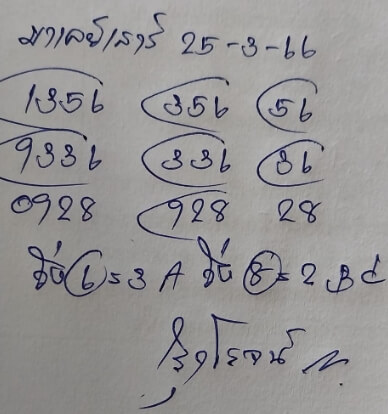 มาเลย์เสาร์ 25-3-66
1356 356 56
9336 336 36
0928 928 28
6=3 A 8=2 BC